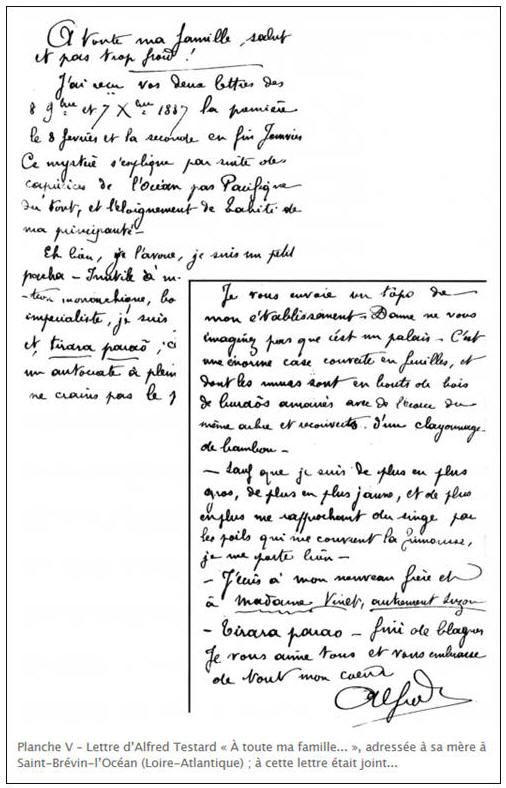 A toute ma famille, salut
et pas trop froid !
J'ai reçu vos deux lettres des
8 9bre et 7 Xbre 1887 la première
le 8 fevrier et la seconde en fin Janvier
Ce mystère s'explique par suite des
caprices de l'Océan pas Pacifique
du tout, et l'éloignement de Tahiti de
ma principauté -
Eh bien, je l'avoue, je suis un petit
pacha - Inutile d'in-
-tion monarchique, bo
impérialiste, je suis
et tirara parao, ici
un autocrate à plein
ne crains pas le
Je vous envoie un topo de
mon établissement - Dame ne vous
imaginez pas que c'est un palais - C'est
une énorme case couverte en feuilles, et
dont les murs sont en bouts de bois
de buraôs amarrés avec de l'écorce du
même arbre et recouverts d'un clayonnage
de bambou -
- Sauf que je suis de plus en plus
gros, de plus en plus jaune, et de plus
en plus me rapprochant du singe par
les poils qui me couvrent la frimousse,
je me porte bien -
- J'écris à mon nouveau frère et
à Madame Vinet, autrement Suzon
- Tirara parao - fini de blaguer
Je vous aime tous et vous embrasse
de tout mon coeur
Alfred
Planche V - Lettre d'Alfred Testard « À toute ma famille... », adressée à sa mère à
Saint-Brévin-l'Océan (Loire-Atlantique) ; à cette lettre était joint...